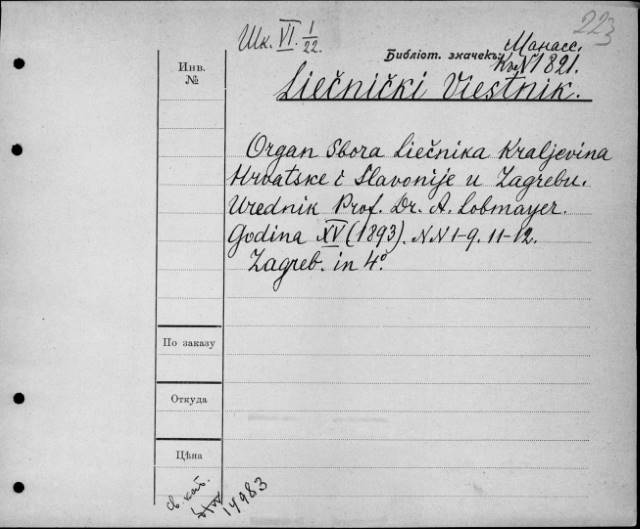 223
Шк. VI. 1/22.
Библіот. значекъ
Манасс.
Къ N 1821.
Инв.
№
Liečnički Viestnik.
Organ Sbora Liečnika Kraljevina
Hrvatske i Slavonije u Zagrebu.
Urednik Prof. Dr. A. Lobmayer.
Godina XV (1893). NN 1-9. 11-12.
Zagreb. in 4°.
По заказу
Откуда
Цѣна
св. кат.
14983